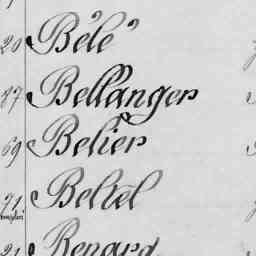 20 Bélé
87 Bellanger
69 Belier
91 Beltel
21 Benard